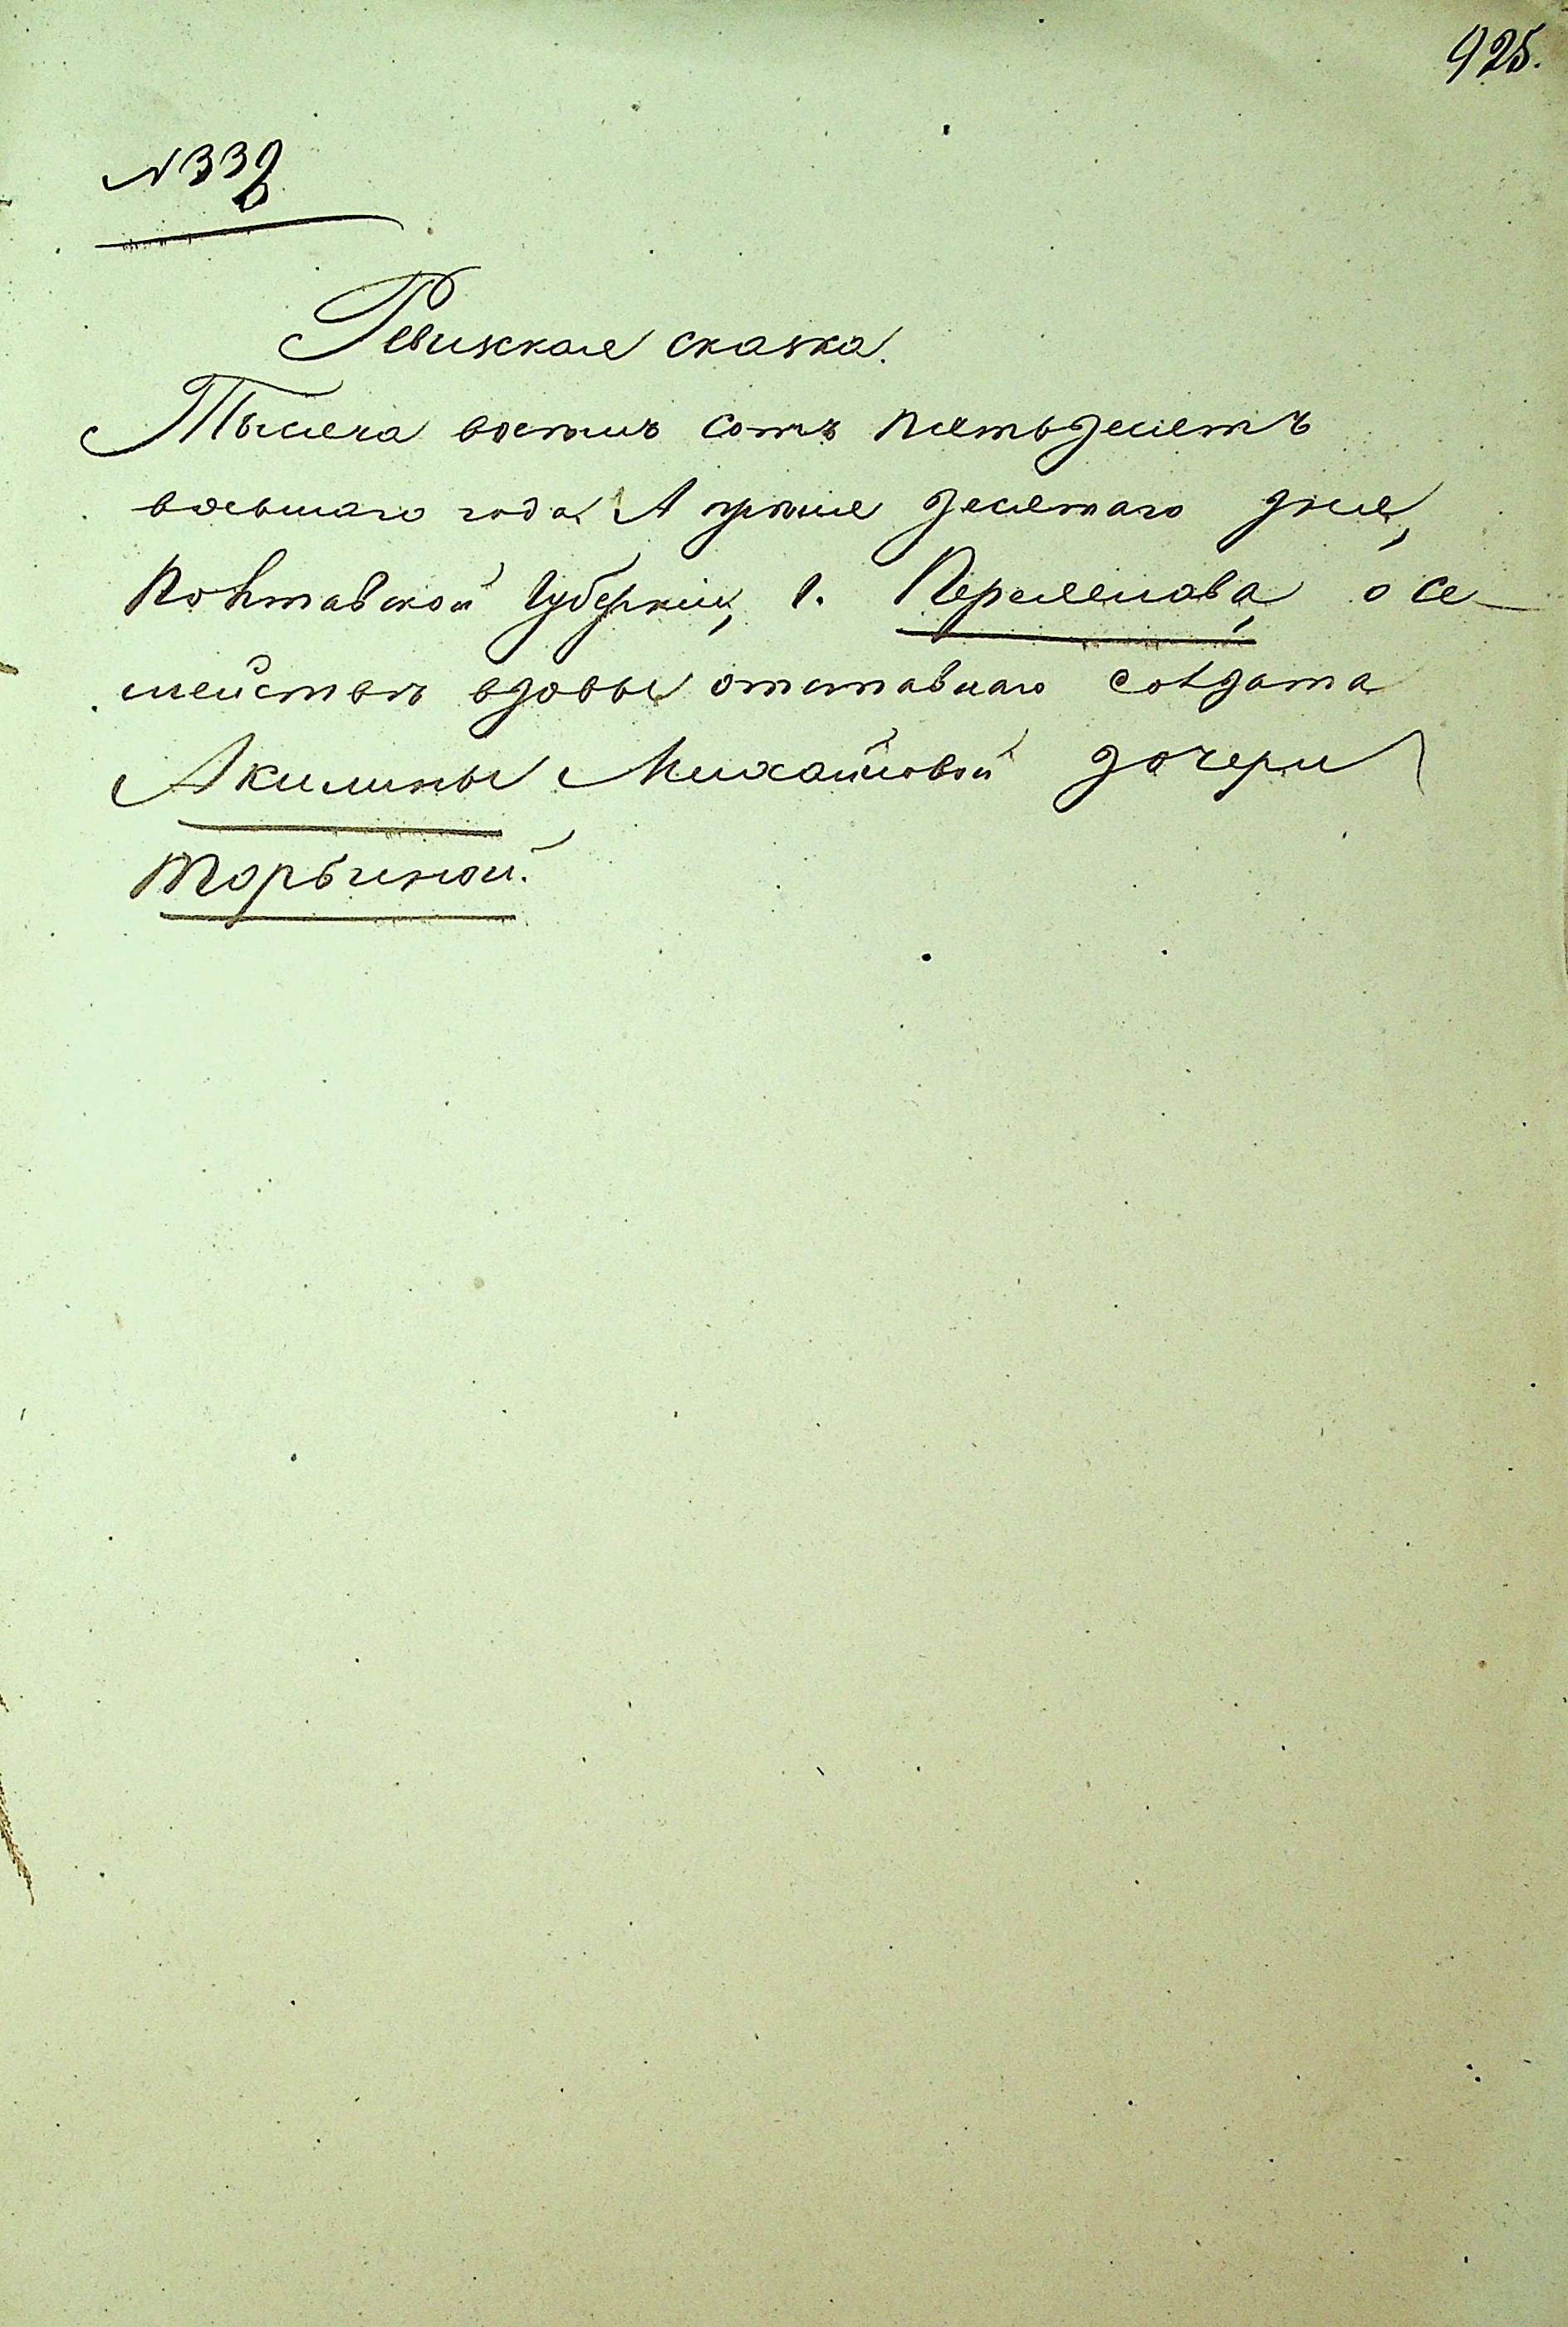 925.
N 332
Ревизкая сказка.
Тысяча восемь сотъ пятьдесятъ
восьмаго года Апреля десятаго дня,
Полтавской Губерніи, г. Переяслава, о се-
мействѣ вдовы отставнаго солдата
Акилины Михайловой дочери
Торбиной.